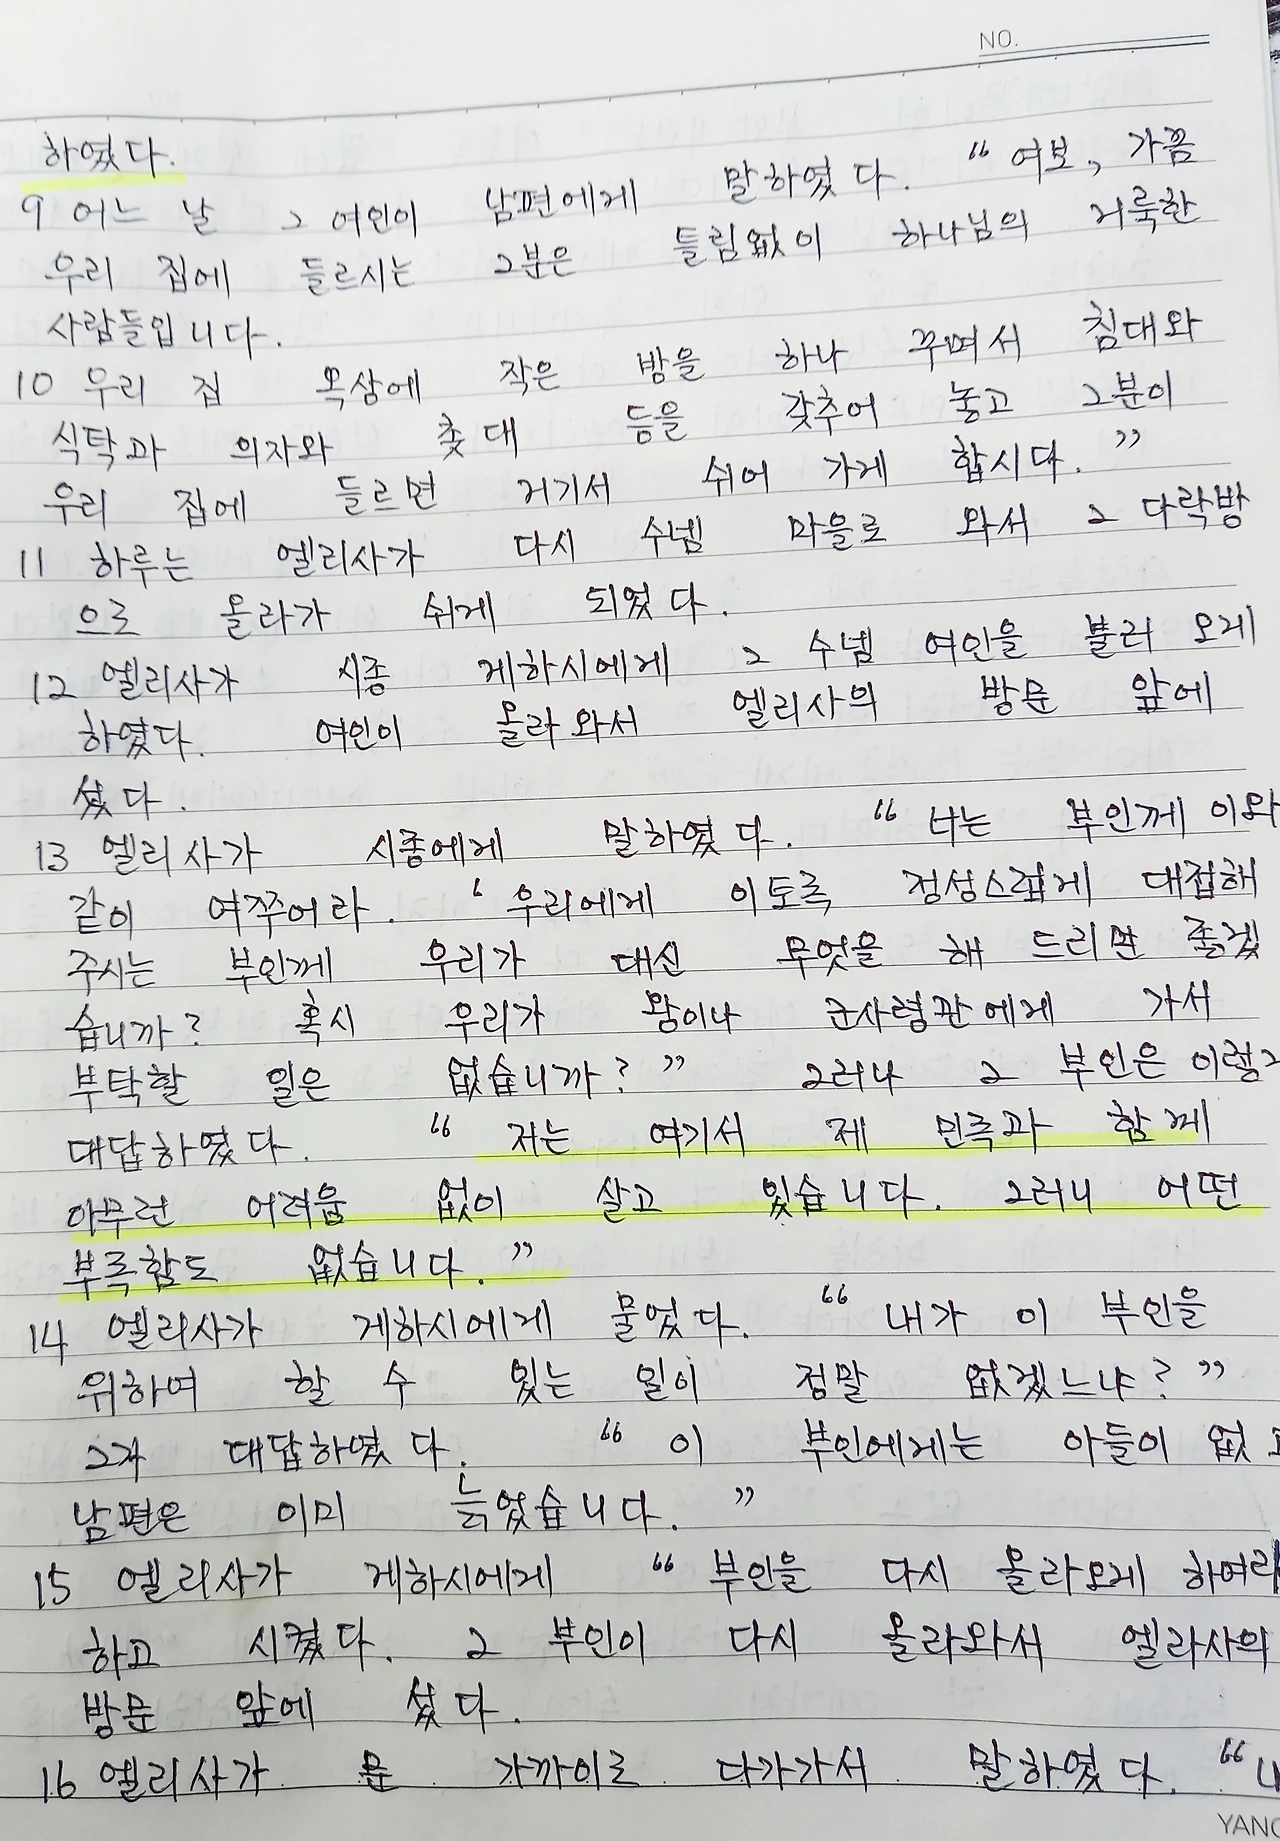 NO.
하였다.
9 어느 날 그 여인이 남편에게 말하였다. “여보, 가끔
우리 집에 들르시는 그분은 틀림없이 하나님의 거룩한
사람들입니다.
10 우리 집 옥상에 작은 방을 하나 꾸며서 침대와
식탁과 의자와 촛대 등을 갖추어 놓고 그분이
우리 집에 들르면 거기서 쉬어 가게 합시다.”
11 하루는 엘리사가 다시 수넴 마을로 와서 그 다락방
으로 올라가 쉬게 되었다.
12 엘리사가 시종 게하시에게 그 수넴 여인을 불러 오게
하였다. 여인이 올라와서 엘리사의 방문 앞에
섰다.
13 엘리사가 시종에게 말하였다. “너는 부인께 이와
같이 여쭈어라. ‘우리에게 이토록 정성스럽게 대접해
주시는 부인께 우리가 대신 무엇을 해 드리면 좋겠
습니까? 혹시 우리가 왕이나 군사령관에게 가서
부탁할 일은 없습니까?” 그러나 그 부인은 이렇게
대답하였다. “저는 여기서 제 민족과 함께
아무런 어려움 없이 살고 있습니다. 그러니 어떤
부족함도 없습니다.”
14 엘리사가 게하시에게 물었다. “내가 이 부인을
위하여 할 수 있는 일이 정말 없겠느냐?”
그가 대답하였다. “이 부인에게는 아들이 없고
남편은 이미 늙었습니다.”
15 엘리사가 게하시에게 “부인을 다시 올라오게 하여라
하고 시켰다. 그 부인이 다시 올라와서 엘리사의
방문 앞에 섰다.
16 엘리사가 문 가까이로 다가가서 말하였다. “내
YANG